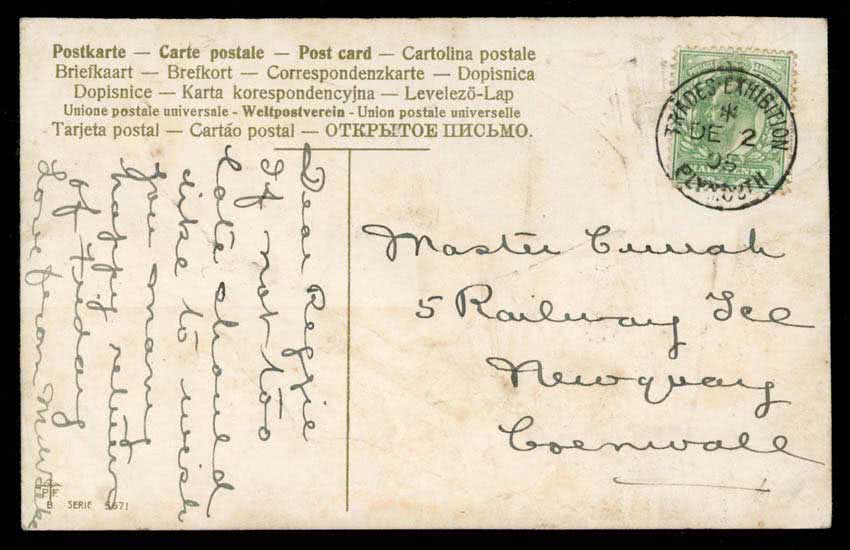 Postkarte — Carte postale — Post card — Cartolina postale
Briefkaart — Brefkort — Correspondenzkarte — Dopisnica
Dopisnice — Karta korespondencyjna — Levelező-Lap
Unione postale universale - Weltpostverein - Union postale universelle
Tarjeta postal — Cartão postal — ОТКРЫТОЕ ПИСЬМО.
TRADES EXHIBITION
DE 2
05
PLYMOUTH
Dear Reggie
If not too
late should
like to wish
you many
happy returns
of Friday
Love from
Master Curnah
5 Railway Tce
Newquay
Cornwall
B SERIE 5671